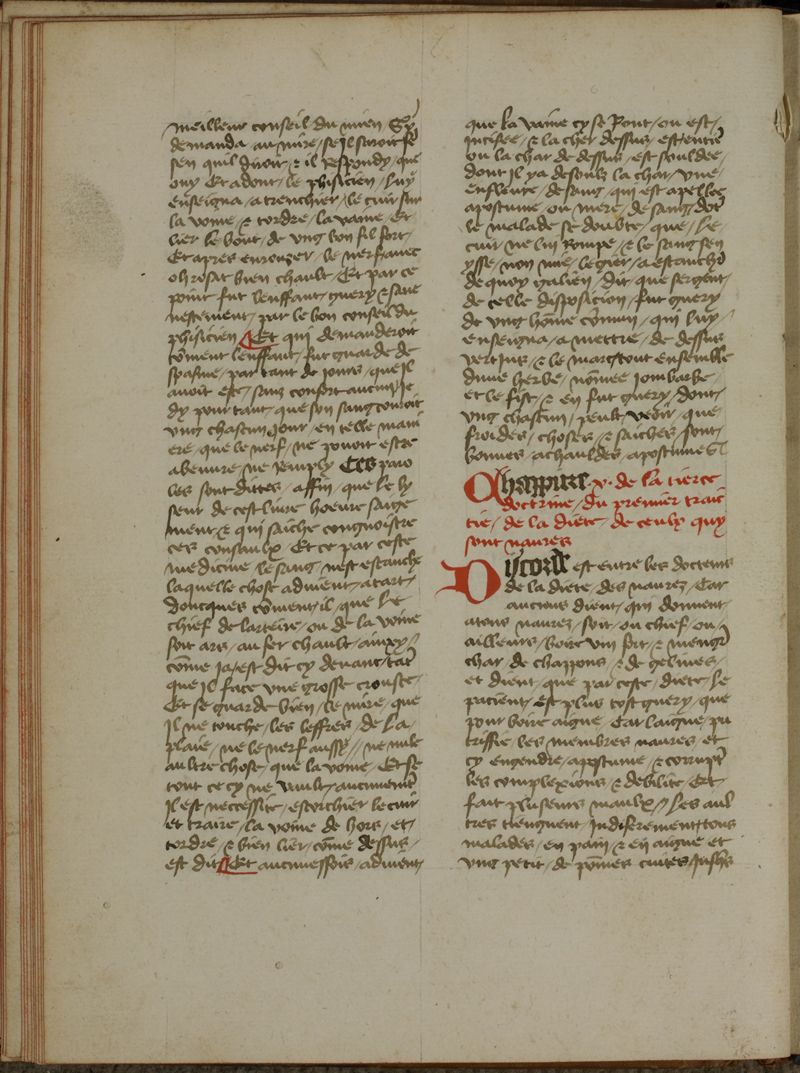 meilleur conseil du mien Sy
demanda au mire / se il savoit se
sen quil diroit / ⁊ il respondy / que
ouy Et adonc / le phisicien / luy
enseigna / a trenchier / le cuir sur
la voine / ⁊ tordre / la vaine / Et
lier le bout / de vng bon fil fort /
Et apres enroser / le nerf / avec
oh rosat bien chault / Et par ce
point fut lenffant / guery ⁊ sane
nestement / par le bon conseil du
phisicien / Et qui demanderoit
comēt lenffant / fut guarde de
spasme / par tant de jours / que il
avoit este / sans confort aucun / Je
dy pour tant / que son sang couroit
vng chascun jour / en telle mani
ere / que le nerf / ne povoit estre
abeuure / ne remply Ces paro
les sont dittes / affin / que le ly
seur de cest livre / hoeure saige
ment / ⁊ qui saiche congnoistre
ces consaulx Et ce par ceste
medicine / le sang / nest estanche
laquelle chose advient / a tart /
doncques cōment / il / que le
chief de larteire / ou de la voine
soit ars / au fer chault / ainxy /
cōme ja / est dit cy devant / tāt
que il face vne grosse crouste /
Et se guarde bien / le mire / que
Il ne touche / les leffres / de la
plaie / ne le nerf aussy // ne nule
aultre chose / que la voine / Et se
tout ce cy ne vault / aucunemēt
Il est neccessite / escorchier le cuir /
et traire / la voine de hors / et /
tordre / ⁊ bien lier / cōme dessus /
est dit / Et aucuneffois / advient /
que la vaine cy se Ront / ou est /
incisee / ⁊ la cher dessus / est entie
ou la char de dessus / est souldee /
dont il ya desoubz la char / vne
enfleure / de sang / qui est apellee
apostume / ou mere / de sang dōt
le malade se doubte / que / le
cuir ne lui Rompe / ⁊ le sang sen
ysse / non mie / legier / a estancher
de quoy galien / dit / que sergent /
de telle disposicion / fut guery
de vng hōme cōmun / qui luy /
enseigna / a mettre / de dessus
vertjus / ⁊ le marc / tout ensemble
dune herbe / nōmee jombarbe /
et le fist / ⁊ en fut guery / dont /
vng chascun / peult veoir / que
froides / choses / ⁊ saiches / sont /
bonnes / a chauldes / apostumes
Chappitre .v. de la tierce
doctrine / du premier trait
tie / de la diete / de ceulx quy
sont naures
Discorde est entre les docteurs
de la diete / des naurez / Car
aucuns dient / qui donnent /
a tous naurez / soit / ou chief / ou /
ailleurs / boire vin fort / ⁊ mengr
char / de chappons / ⁊ de gelines /
et dient / que par ceste / diete / le
pacient / est plus tost guery / que
pour boire aigue / Car laigue / pu
triffie / les membres / naures / et
cy engendre / apostume / ⁊ corrupt
les complexions / ⁊ debilite / Et
fait pluseurs maulx // Les aul
tres tiengnent / Indiferement / tous
malades / en pain / ⁊ en aigue et
vng petit / de pōmes cuites /